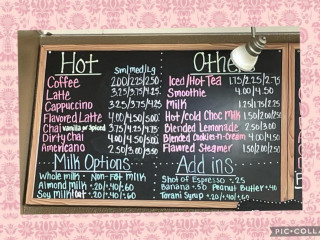 Hot
sm/med/lg
Coffee 2.00/2.25/2.50
Latte 3.25/3.75/4.25
Cappuccino 3.25/3.75/4.25
Flavored Latte 4.00/4.50/5.00
Chai vanilla or Spiced 3.75/4.25/4.75
Dirty Chai 4.00/4.50/5.00
Americano 2.50/3.00/3.50
Milk Options
Whole milk • Non-Fat milk
Almond milk +.20/+.40/+.60
Soy milk +.20/+.40/+.60
Othe
Iced/Hot Tea 1.75/2.25/2.75
Smoothie 4.00/4.50
Milk 1.25/1.75/2.25
Hot/cold Choc milk 1.50/2.00/2.50
Blended Lemonade 2.50/3.00
Blended Cookies-n-Cream 4.00/4.50
Flavored Steamer 1.50/2.00/2.50
Add ins
Shot of Espresso +.25
Banana +.50 Peanut Butter +.40
Torani Syrup +.20/+.40/+.60
PIC•COLLA